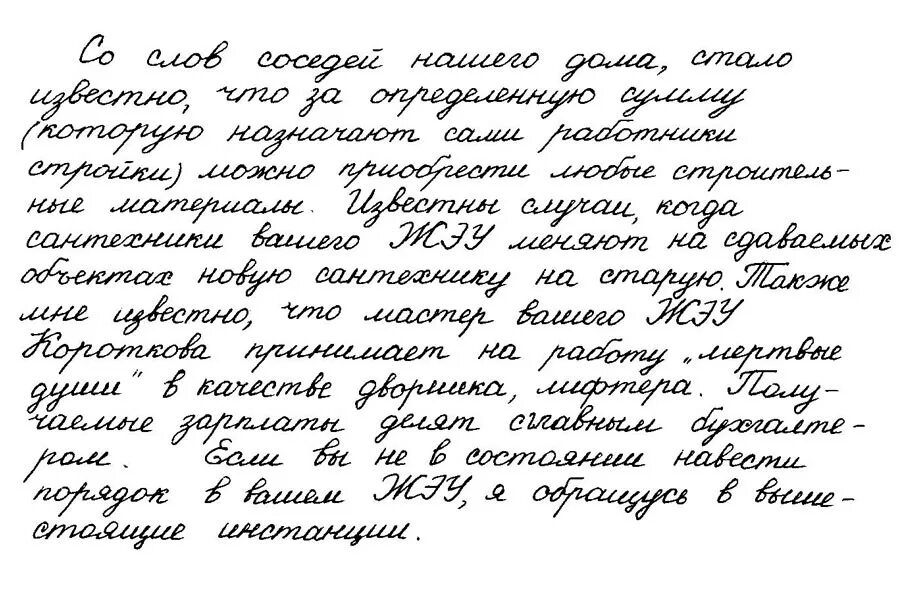 Со слов соседей нашего дома, стало
известно, что за определенную сумму
(которую назначают сами работники
стройки) можно приобрести любые строитель-
ные материалы. Известны случаи, когда
сантехники вашего ЖЭУ меняют на сдаваемых
объектах новую сантехнику на старую. Также
мне известно, что мастер вашего ЖЭУ
Короткова принимает на работу „мертвые
души" в качестве дворника, лифтера. Полу-
чаемые зарплаты делят с главным бухгалте-
ром. Если вы не в состоянии навести
порядок в вашем ЖЭУ, я обращусь в выше-
стоящие инстанции.